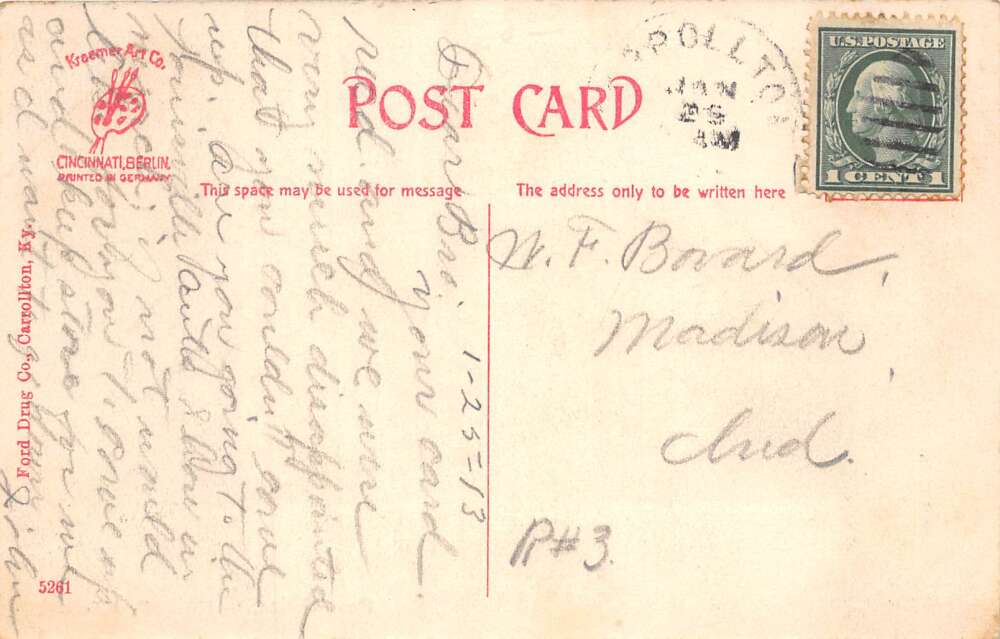 Kraemer Art Co.
CINCINNATI, BERLIN.
PRINTED IN GERMANY
POST CARD
This space may be used for message
The address only to be written here
U.S. POSTAGE
1 CENT 1
JAN
25
AM
Ford Drug Co., Carrollton, Ky.
5261
1-25-13
Dear Bro. your card
rec'd and we were
very much disappointed
that you couldn't come
up. are you going to the
if not would
like to have you to come up
and keep store for me
W. F. Bovard,
Madison,
Ind.
R#3.